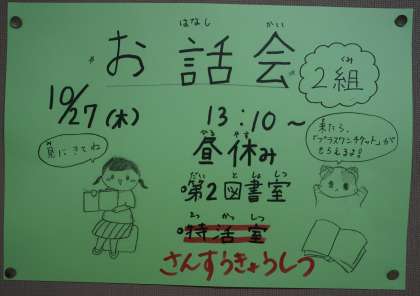 はなし かい
お話会
2組
くみ
10/27(木)
13:10〜
ひる やす
昼休み
見にきてね
み
来たら、
「プラスワンチケット」が
もらえるよ!
だい と しょ しつ
第2図書室
とっ かつ しつ
特活室
さんすうきょうしつ